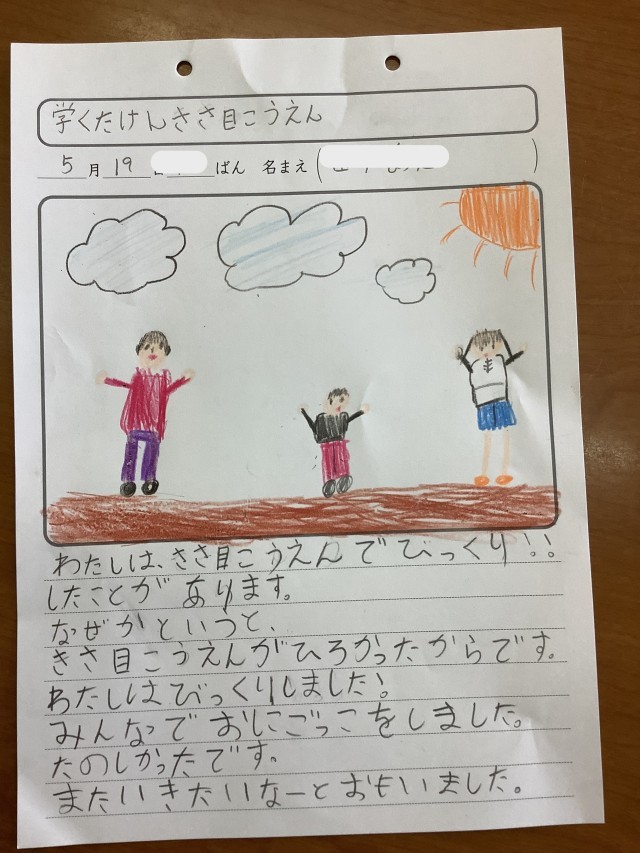 学くたけんきさ目こうえん
5月19 ばん 名まえ(      )
わたしは、きさ目こうえんでびっくり!!
したことがあります。
なぜかといつと、
きさ目こうえんがひろかったからです。
わたしはびっくりしました!
みんなでおにごっこをしました。
たのしかったです。
またいきたいなーとおもいました。